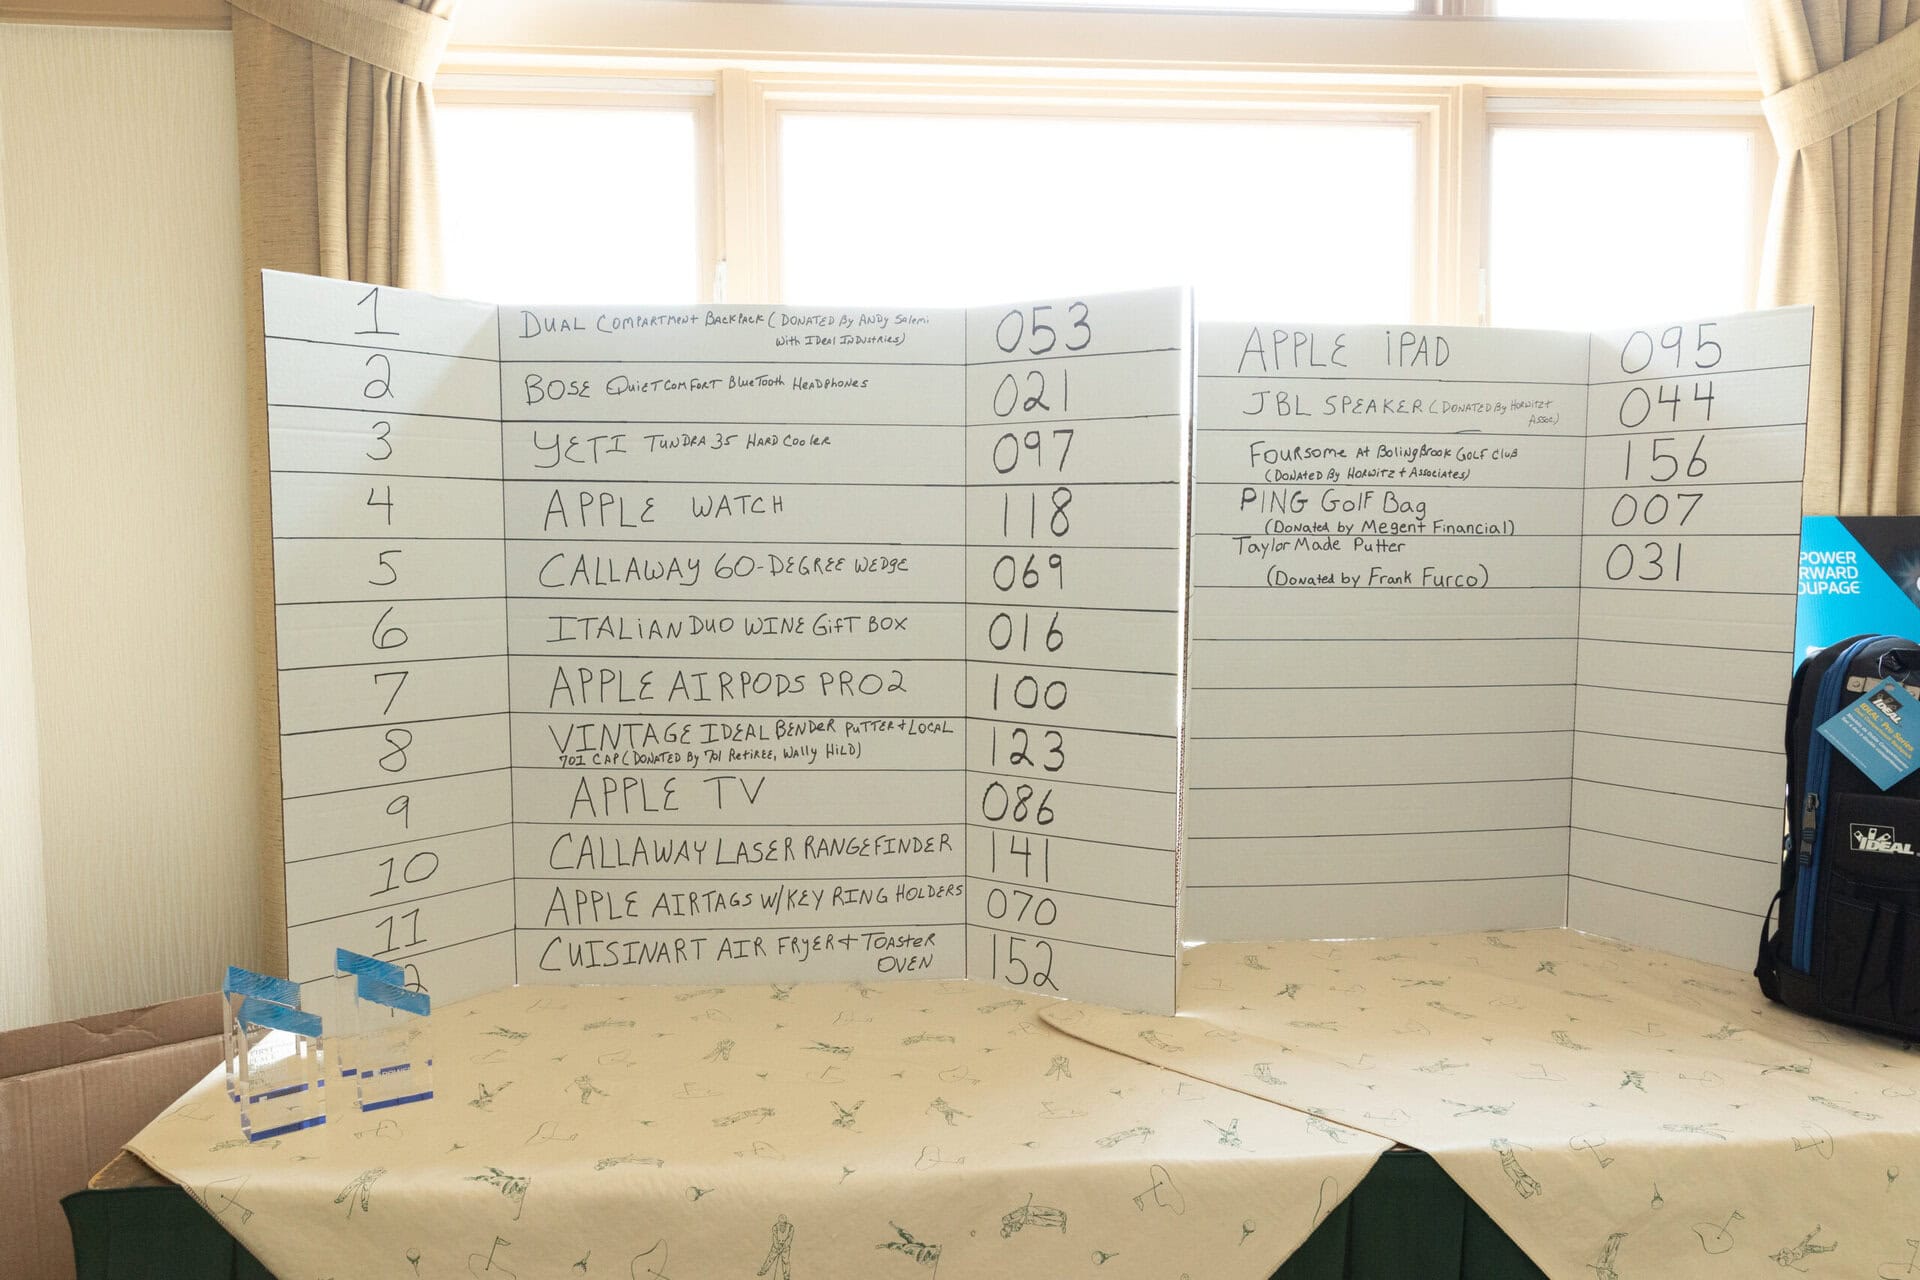 1 DUAL COMPARTMENT BACKPACK (DONATED By ANDy Salemi 053
With IDeal INDUSTRIES)
2 BOSE QUIETCOMFORT BlueTooth HEADPHONES 021
3 YETI TUNDRA 35 HARD COOLER 097
4 APPLE WATCH 118
5 CALLAWAY 60-DEGREE WEDGE 069
6 ITALIAN DUO WINE GifT BOX 016
7 APPLE AIRPODS PRO2 100
8 VINTAGE IDEAL BENDER PUTTER + LOCAL 123
701 CAP (DONATED By 701 RetiREE, WAlly HILD)
9 APPLE TV 086
10 CALLAWAY LASER RANGEFINDER 141
11 APPLE AIRTAGS W/KEY RING HOLDERS 070
2 CUISINART AIR FRYER + TOASTER 152
OVEN
APPLE iPAD 095
JBL SPEAKER (DONATED By HORWITZ + 044
Assoc.)
FOURSOME AT BOLINGBROOK GOLF CLUB 156
(DONATED By HORWITZ + ASSOCIATES)
PING GOLF BAG 007
(Donated by Megent Financial)
Taylor Made Putter 031
(Donated by Frank Furco)
POWER
RWARD
DUPAGE
IDEAL
IDEAL Pro Series
Dual Compartment Backpack
IDEAL
FIRST
PLACE